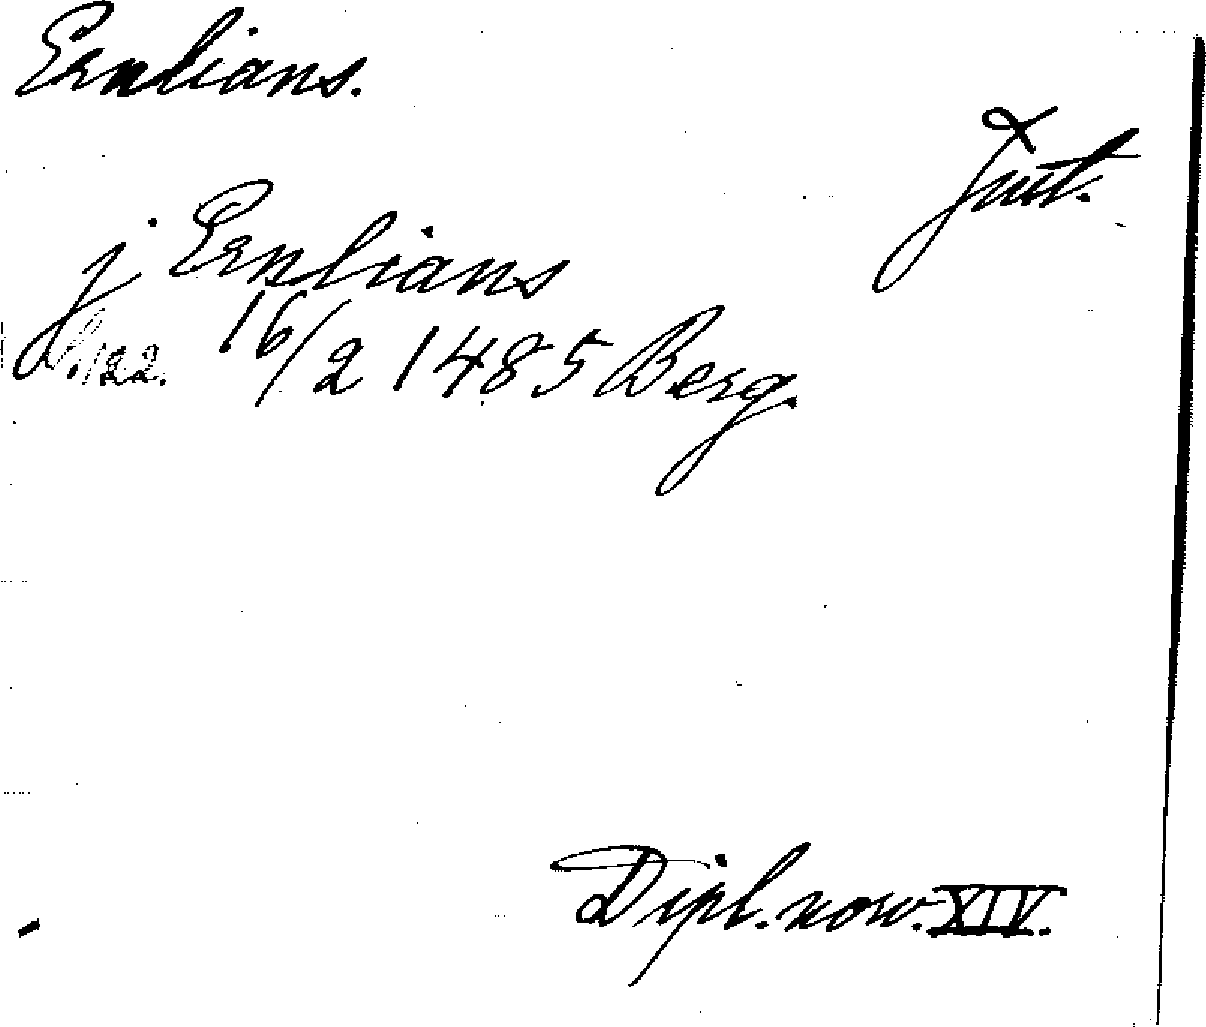 Ernlians.
Jmt.
j Ernlians
S. 122. 16/2 1485 Berg.
Dipl. norv. XIV.